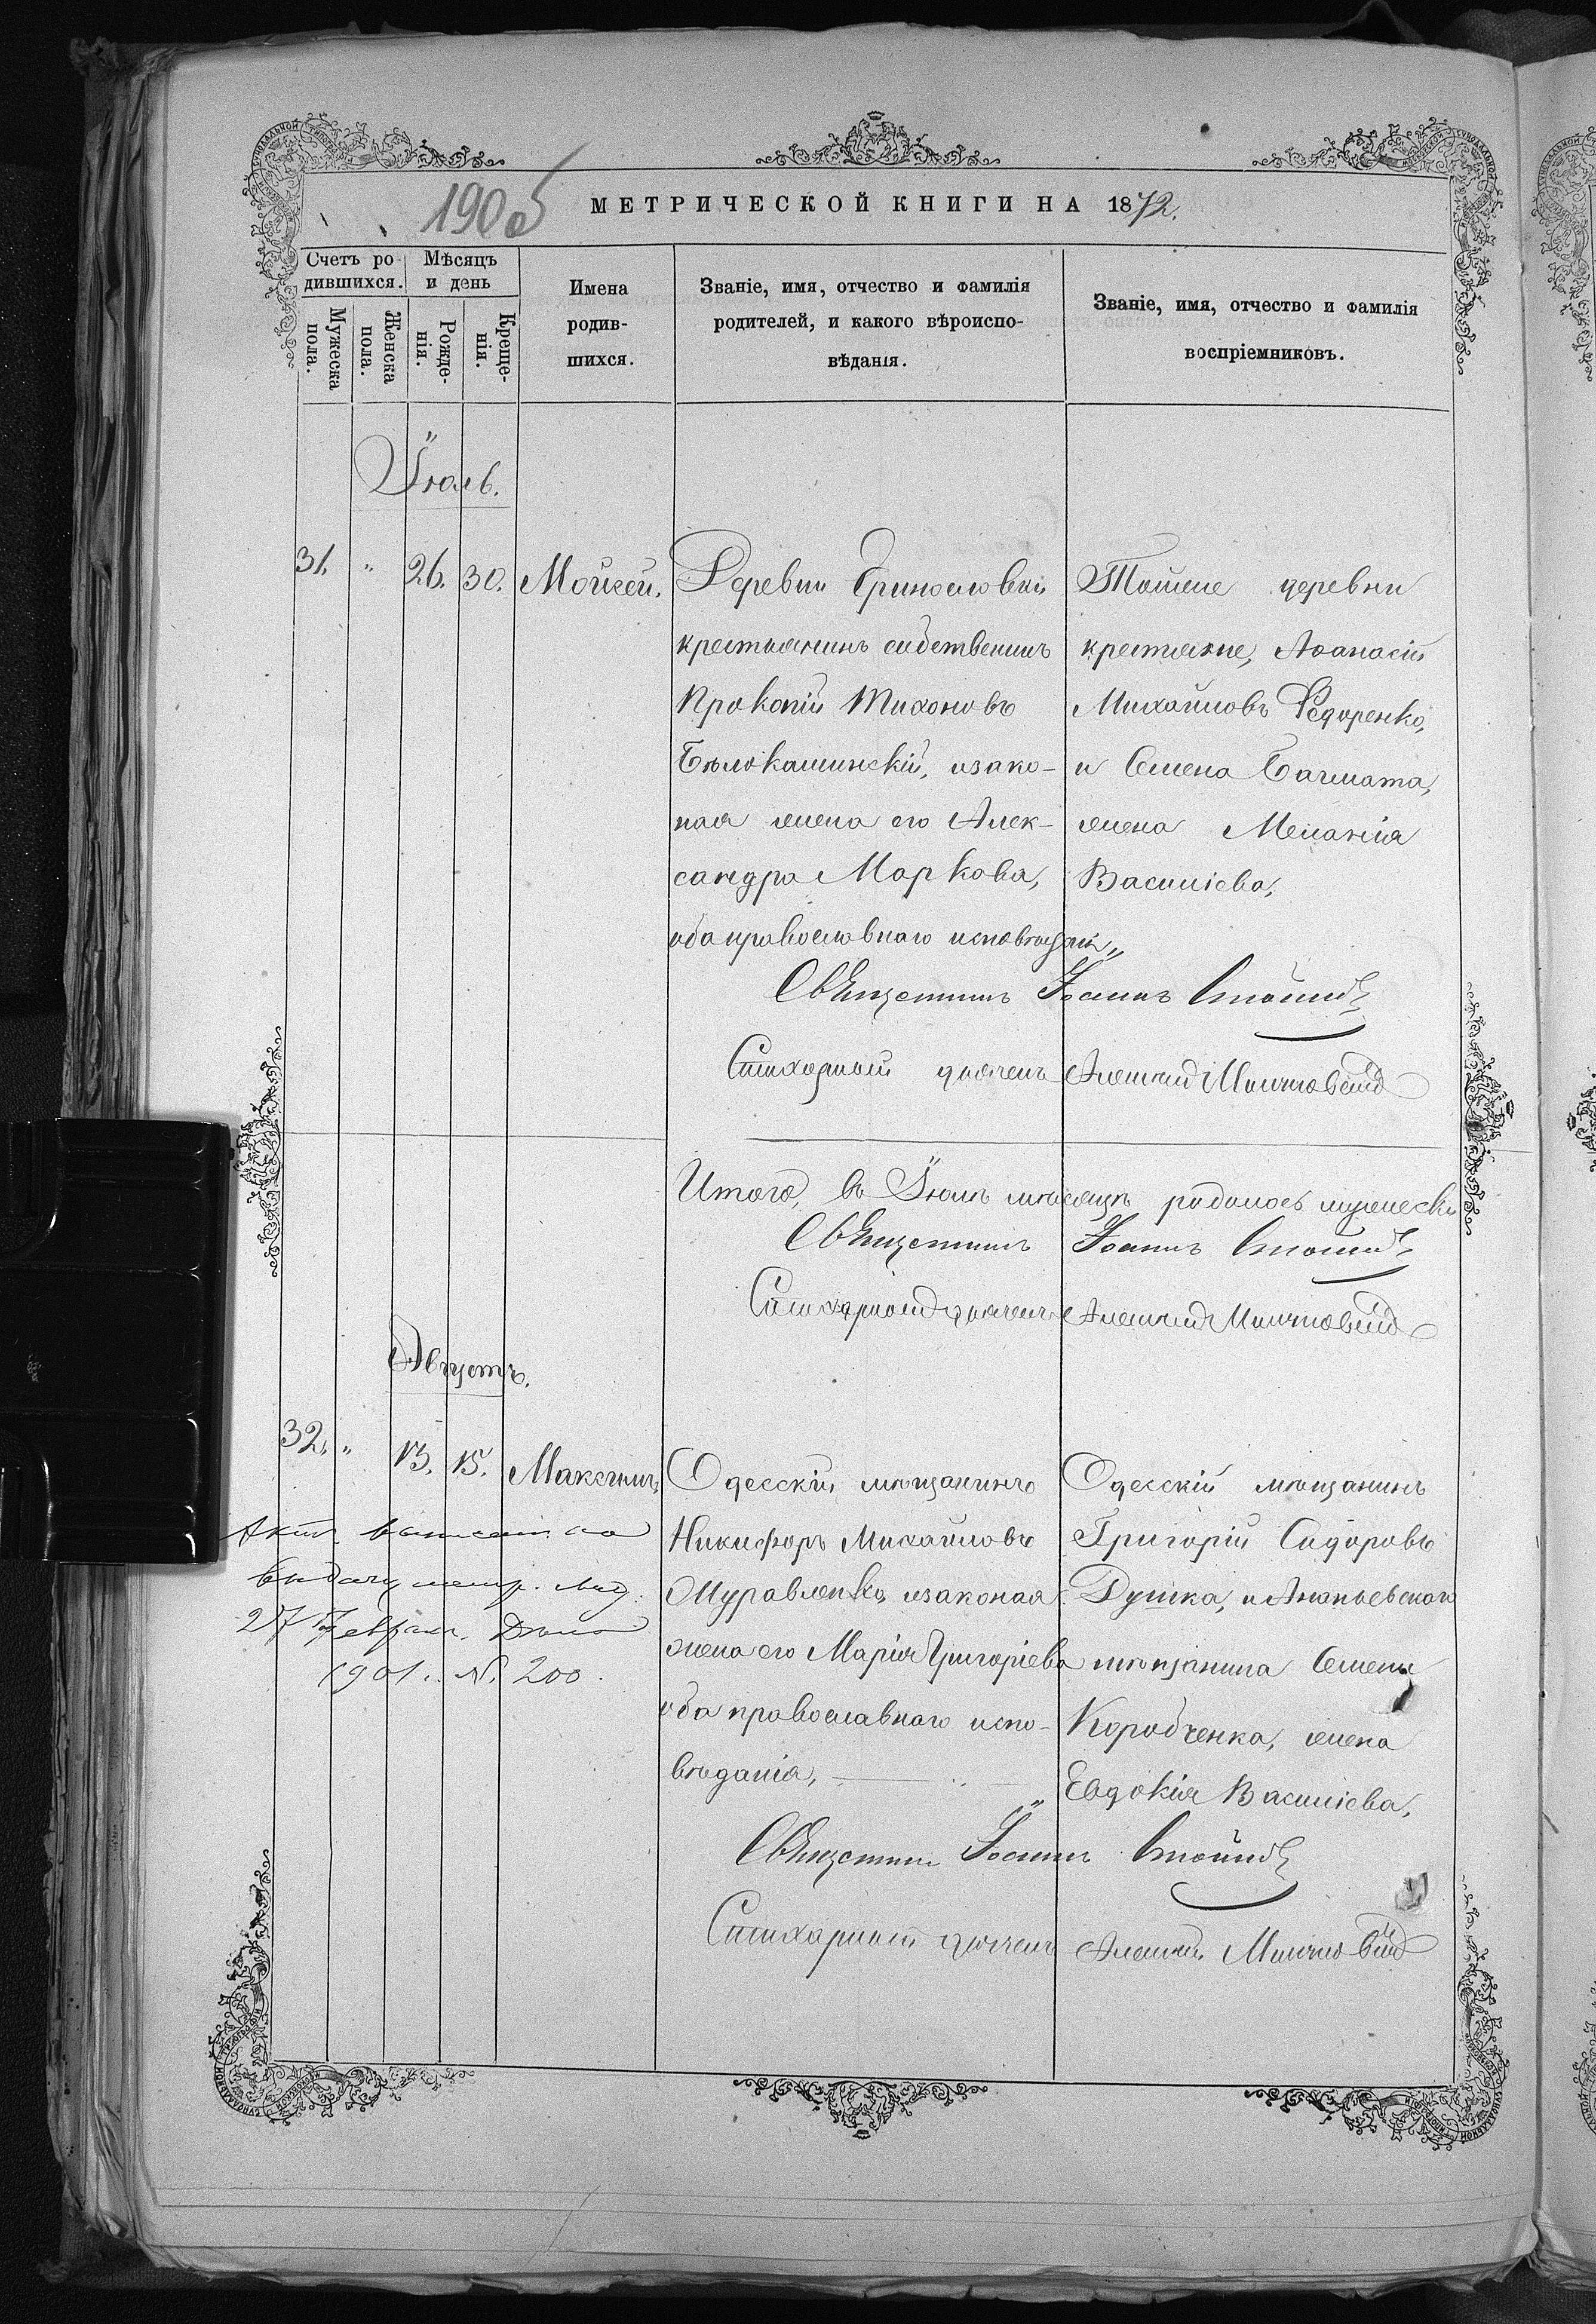 190 об
МЕТРИЧЕСКОЙ КНИГИ НА 1872.
Счетъ ро-
дившихся.
Мѣсяцъ
и день
Мужеска
пола.
Женска
пола.
Рожде-
нія.
Креще-
нія.
Имена
родив-
шихся.
Званіе, имя, отчество и фамилія
родителей, и какого вѣроиспо-
вѣданія.
Званіе, имя, отчество и фамилія
воспріемниковъ.
Іюль.
31. " 26. 30. Мойсей.
Деревни
крестьянинъ собственникъ
Прокопій Тихоновъ
изако-
ная жена его Алек-
сандра Маркова,
оба православнаго исповѣданія,
Тойже деревни
крестьяне, Афанасій
Михайловъ Федоренко,
и Семена
жена Меланія
Василіева,
Священникъ Іоаннъ
Стихарный дьячекъ Алексѣй
Итого, въ Іюлѣ мѣсяцѣ родилось мужеска
Священникъ Іоаннъ
Стихарный дьячекъ Алексѣй
Августъ.
32. " 13. 15. Максимъ,
Одесскій мѣщанинъ
Никифоръ Михайловъ
Муравленко, изаконая
жена его Марія Григоріева
оба православнаго испо-
вѣданія,
Одесскій мѣщанинъ
Григорій Сидоровъ
Душка, и Ананьевскаго
мѣщанина Семена
Коробченка, жена
Евдокія Василіева,
Актъ выписанъ на
выдачу метр. свид.
27 Февраля. Дѣло
1901. № 200.
Священникъ Іоаннъ
Стихарный дьячекъ Алексѣй